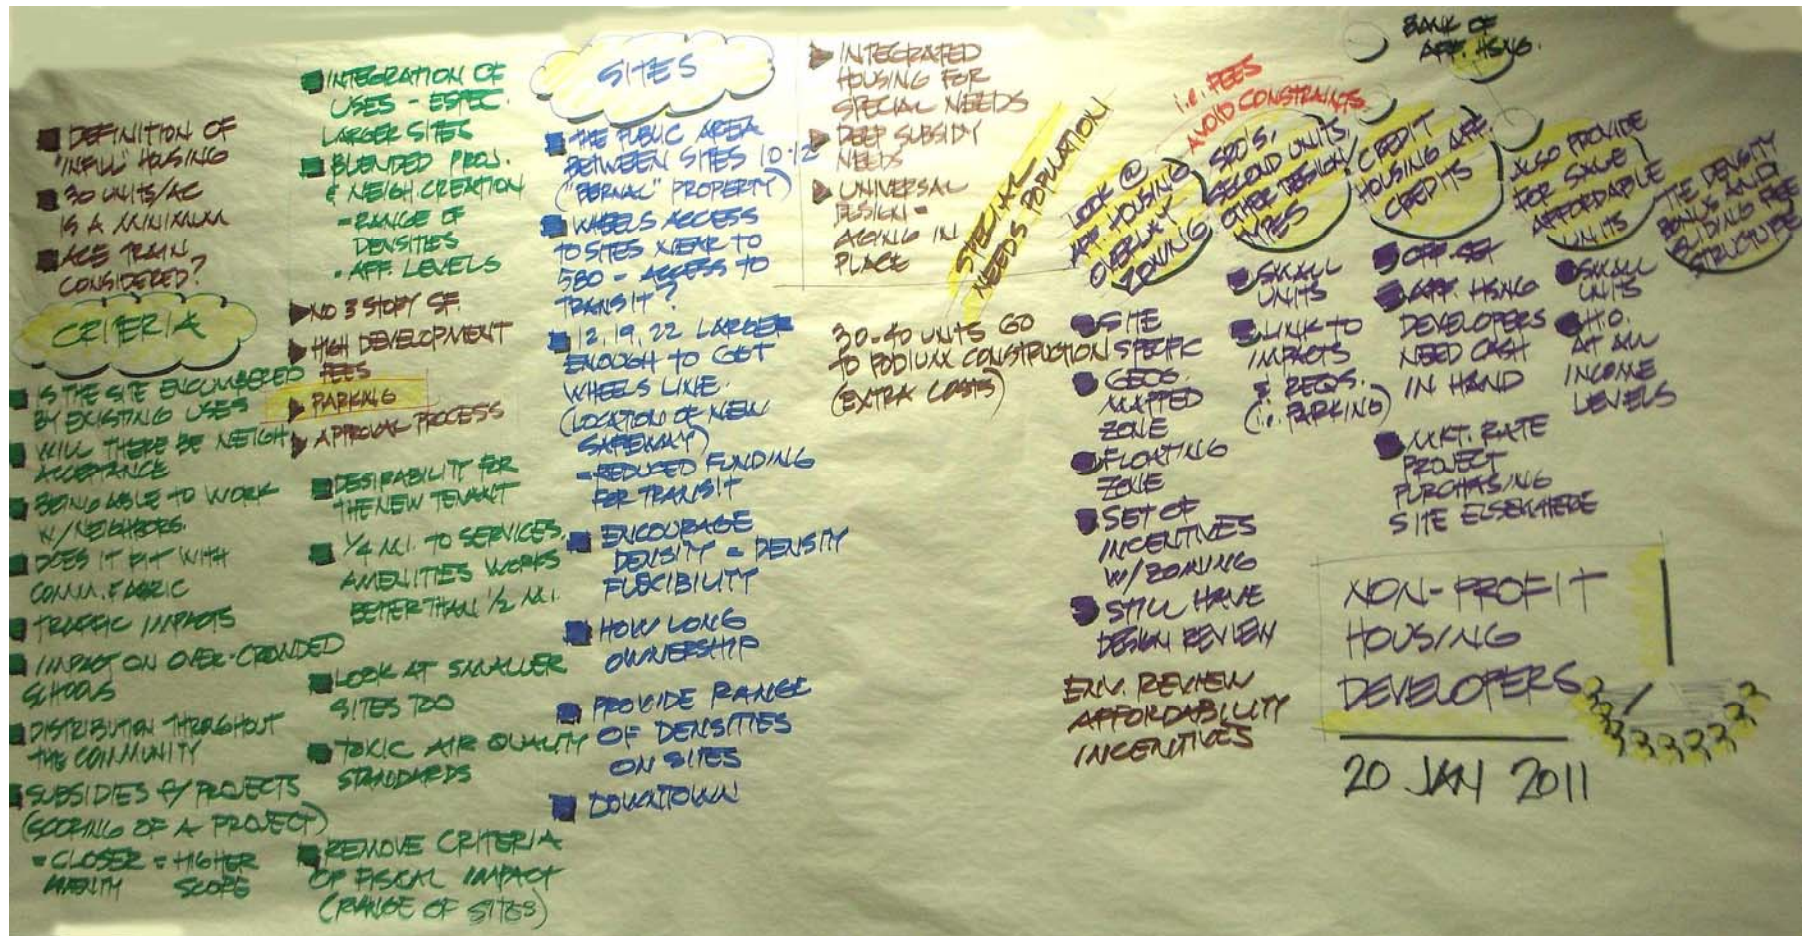 DEFINITION OF
"INFILL" HOUSING
30 UNITS/AC
IS A MINIMUM
ACE TRAIN
CONSIDERED?
CRITERIA
IS THE SITE ENCUMBERED
BY EXISTING USES
WILL THERE BE NEIGH.
ACCEPTANCE
BEING ABLE TO WORK
W/NEIGHBORS.
DOES IT FIT WITH
COMM. FABRIC
TRAFFIC IMPACTS
IMPACT ON OVER-CROWDED
SCHOOLS
DISTRIBUTION THROUGHOUT
THE COMMUNITY
SUBSIDIES F/ PROJECTS
(SCORING OF A PROJECT)
= CLOSER = HIGHER
SCOPE
INTEGRATION OF
USES - ESPEC.
LARGER SITES
BLENDED PROJ.
& NEIGH CREATION
- RANGE OF
DENSITIES
- AFF. LEVELS
NO 3 STORY SF.
HIGH DEVELOPMENT
FEES
PARKING
APPROVAL PROCESS
DESIRABILITY FOR
THE NEW TENANT
1/4 MI. TO SERVICES,
AMENITIES WORKS
BETTER THAN 1/2 MI.
LOOK AT SMALLER
SITES TOO
TOXIC AIR QUALITY
STANDARDS
REMOVE CRITERIA
OF FISCAL IMPACT
(RANGE OF SITES)
SITES
THE PUBLIC AREA
BETWEEN SITES 10-12
("BERNAL" PROPERTY)
WHEELS ACCESS
TO SITES NEAR TO
580 - ACCESS TO
TRANSIT?
12, 19, 22 LARGE
ENOUGH TO GET
WHEELS LINE.
(LOCATION OF NEW
SAFEWAY)
- REDUCED FUNDING
FOR TRANSIT
ENCOURAGE
DENSITY = DENSITY
FLEXIBILITY
HOW LONG
OWNERSHIP
PROVIDE RANGE
OF DENSITIES
ON SITES
DOWNTOWN
INTEGRATED
HOUSING FOR
SPECIAL NEEDS
DEEP SUBSIDY
NEEDS
UNIVERSAL
DESIGN -
AGING IN
PLACE
SPECIAL
NEEDS POPULATION
30-40 UNITS GO
TO PODIUM CONSTRUCTION
(EXTRA COSTS)
i.e. FEES
AVOID CONSTRAINTS
LOOK @
AFF. HOUSING
OVERLAY
ZONING
SITE
SPECIFIC
GEOG.
MAPPED
ZONE
FLOATING
ZONE
SET OF
INCENTIVES
W/ ZONING
STILL HAVE
DESIGN REVIEW
ENV. REVIEW
AFFORDABILITY
INCENTIVES
SRO'S,
SECOND UNITS,
OTHER DESIGN/
TYPES
SMALL
UNITS
LINK TO
IMPACTS
& REQS.
(i.e. PARKING)
BANK OF
AFF. HSNG.
CREDIT
HOUSING AFF.
CREDITS
OFF-SET
AFF. HSNG
DEVELOPERS
NEED CASH
IN HAND
MKT. RATE
PROJECT
PURCHASING
SITE ELSEWHERE
ALSO PROVIDE
FOR SALE
AFFORDABLE
UNITS
SMALL
UNITS
H.O.
AT ALL
INCOME
LEVELS
TIE DENSITY
BONUS AND
SLIDING FEE
STRUCTURE
NON-PROFIT
HOUSING
DEVELOPERS
20 JAN 2011